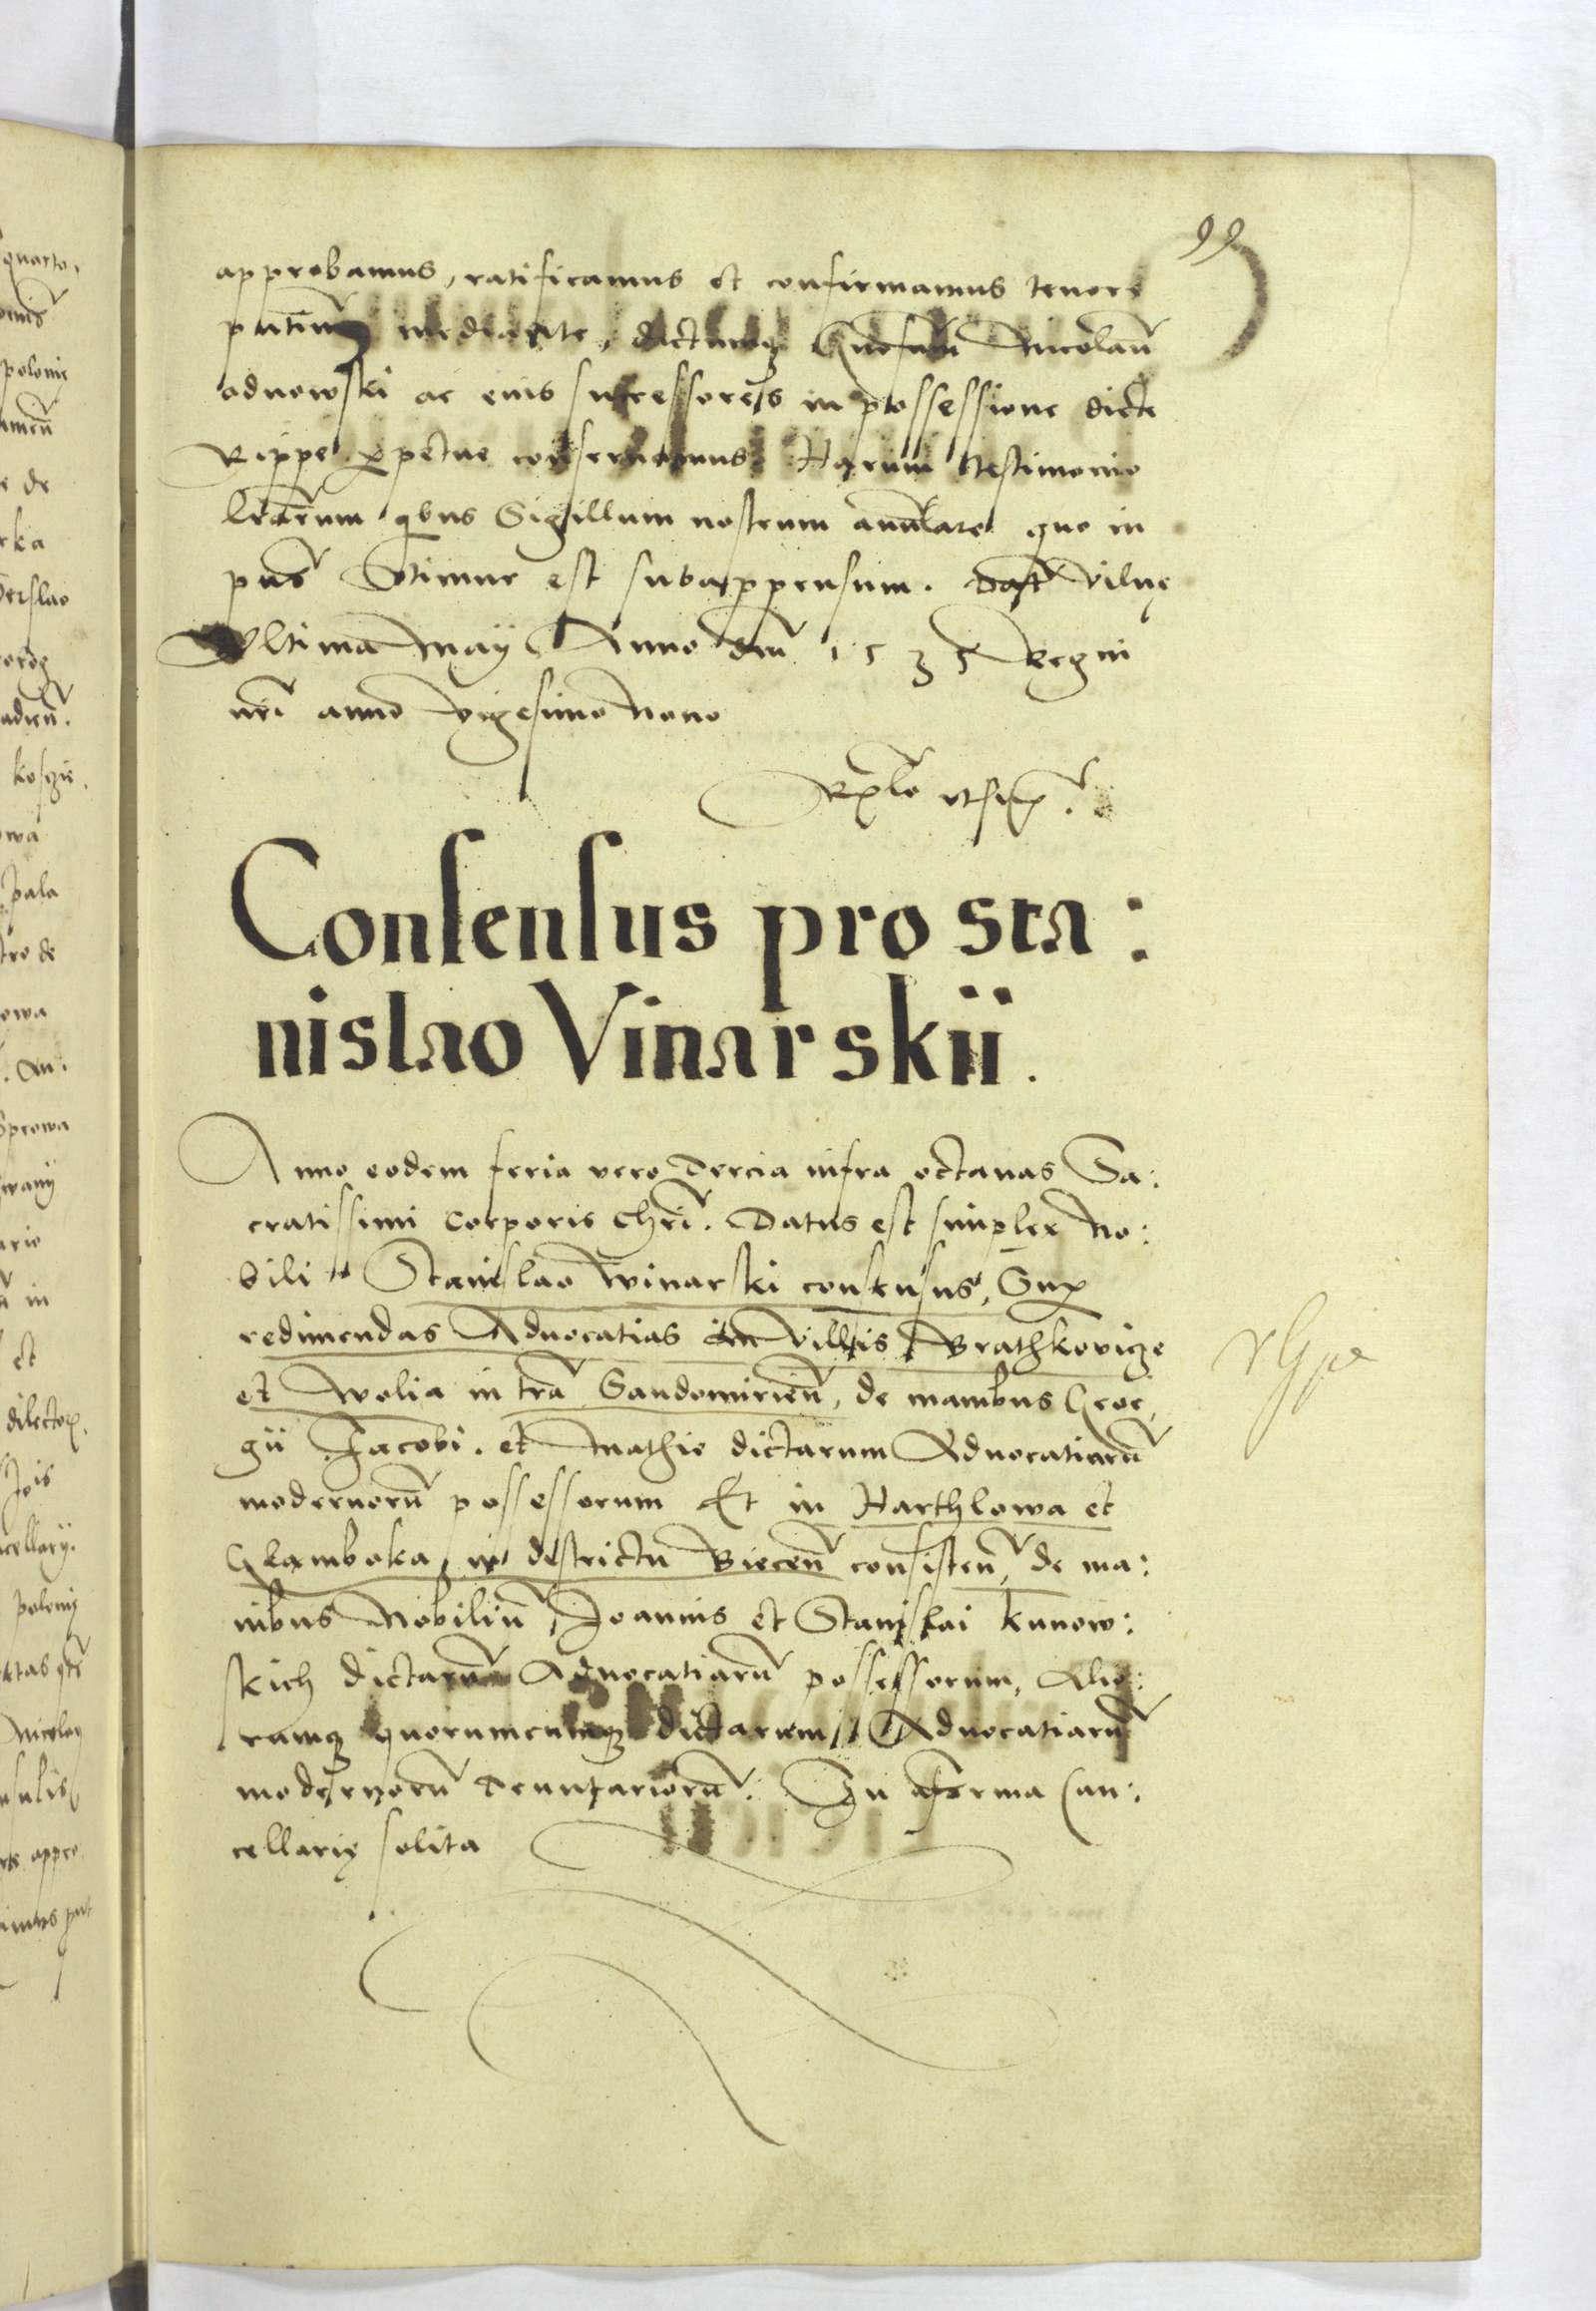 99
approbamus, ratificamus et confirmamus tenore
pntiũ mediante, dictumqȝ Gnosum Nicolaũ
odnowski ac eius successores in possessione dicte
Rippe perpetue conseruamus. Harum testimonio
lrarum qbus Sigillum nostrum annulare quo in
pns vtimur est subappensum. Dat Vilnę
Vltima Maÿ Anno dni 1535 Regni
nri anno vigesimo nono
Rÿlo vtsup.
Consensus pro sta:
nislao Vinarskii.
Anno eodem feria vero Tercia infra octauas Sa:
cratissimi Corporis Chri. Datus est simplex No:
bili Stanislao Winarski consensus, Sup
redimendas Aduocatias in Villis Brathkovicze
et Wolia in tra Sandomirieñ, de manibus Geor,
gii Jacobi. et Mathie dictarum Aduocatiarũ
modernorũ possessorum Et in Harthlowa et
Glamboka, in destrictu Biecẽn consisteñ, de ma:
nibus Nobiliũ Joannis et Stanislai kunow:
skich dictarũ Aduocatiarũ possessorum, Alio:
rumqȝ quorumcumqȝ dictarum Aduocatiarũ
modernorũ Tenutariorũ. In forma Can:
cellarię solita